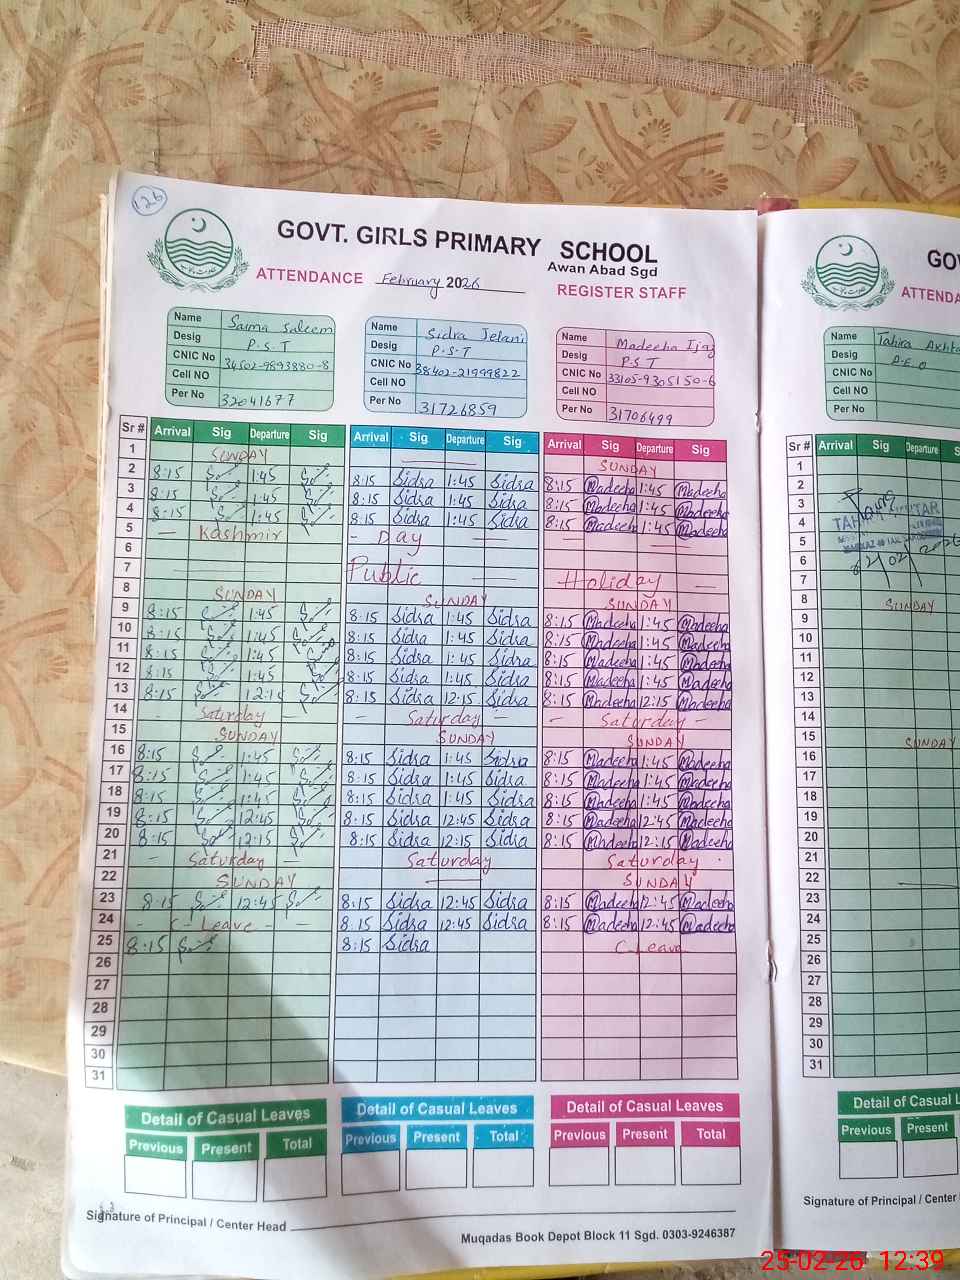 126
GOVT. GIRLS PRIMARY SCHOOL
Awan Abad Sgd
ATTENDANCE February 2026 REGISTER STAFF
Name Saima Saleem
Desig P.S.T
CNIC No 34502-9893880-8
Cell NO
Per No 32041677
Name Sidra Jelani
Desig P.S.T
CNIC No 38402-21999822
Cell NO
Per No 31726859
Name Madeeha Ijaz
Desig P.S.T
CNIC No 33105-9305150-6
Cell NO
Per No 31706499
Sr # Arrival Sig Departure Sig Arrival Sig Departure Sig Arrival Sig Departure Sig
1 SUNDAY SUNDAY
2 8:15 1:45 8:15 Sidra 1:45 Sidra 8:15 Madeeha 1:45 Madeeha
3 8:15 1:45 8:15 Sidra 1:45 Sidra 8:15 Madeeha 1:45 Madeeha
4 8:15 1:45 8:15 Sidra 1:45 Sidra 8:15 Madeeha 1:45 Madeeha
5 Kashmir - Day
6
7 Public Holiday
8 SUNDAY SUNDAY SUNDAY
9 8:15 1:45 8:15 Sidra 1:45 Sidra 8:15 Madeeha 1:45 Madeeha
10 8:15 1:45 8:15 Sidra 1:45 Sidra 8:15 Madeeha 1:45 Madeeha
11 8:15 1:45 8:15 Sidra 1:45 Sidra 8:15 Madeeha 1:45 Madeeha
12 8:15 1:45 8:15 Sidra 1:45 Sidra 8:15 Madeeha 1:45 Madeeha
13 8:15 12:15 8:15 Sidra 12:15 Sidra 8:15 Madeeha 12:15 Madeeha
14 - Saturday - - Saturday - - Saturday -
15 SUNDAY SUNDAY SUNDAY
16 8:15 1:45 8:15 Sidra 1:45 Sidra 8:15 Madeeha 1:45 Madeeha
17 8:15 1:45 8:15 Sidra 1:45 Sidra 8:15 Madeeha 1:45 Madeeha
18 8:15 1:45 8:15 Sidra 1:45 Sidra 8:15 Madeeha 1:45 Madeeha
19 8:15 12:45 8:15 Sidra 12:45 Sidra 8:15 Madeeha 12:45 Madeeha
20 8:15 12:15 8:15 Sidra 12:15 Sidra 8:15 Madeeha 12:15 Madeeha
21 - Saturday - Saturday Saturday
22 SUNDAY SUNDAY
23 8:15 12:45 8:15 Sidra 12:45 Sidra 8:15 Madeeha 12:45 Madeeha
24 - C-Leave - - 8:15 Sidra 12:45 Sidra 8:15 Madeeha 12:45 Madeeha
25 8:15 8:15 Sidra C-Leave
26
27
28
29
30
31
Detail of Casual Leaves Detail of Casual Leaves Detail of Casual Leaves
Previous Present Total Previous Present Total Previous Present Total
Signature of Principal / Center Head
Muqadas Book Depot Block 11 Sgd. 0303-9246387
ATTENDA
Name Tahira
Desig A.E.O
CNIC No
Cell NO
Per No
Sr # Arrival Sig
1
2
3
4
5
6
7
8 SUNDAY
9
10
11
12
13
14
15 SUNDAY
16
17
18
19
20
21
22
23
24
25
26
27
28
29
30
31
Detail of Casual
Previous Present
Signature of Principal / Center
25-02-26 12:39